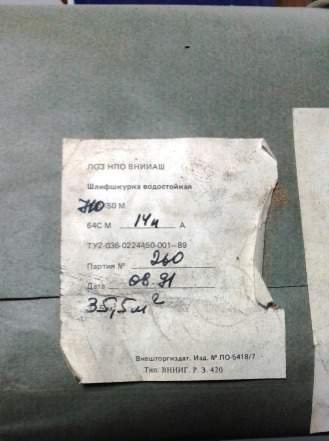 ЛОЗ НПО ВНИИАШ
Шлифшкурка водостойкая
50 М
64С М 14н А
ТУ2-036-0224450-001—89
Партия № 260
Дата 08.91
35,5м²
Внешторгиздат. Изд. № ПО-5418/7
Тип. ВНИИГ. Р. З. 420